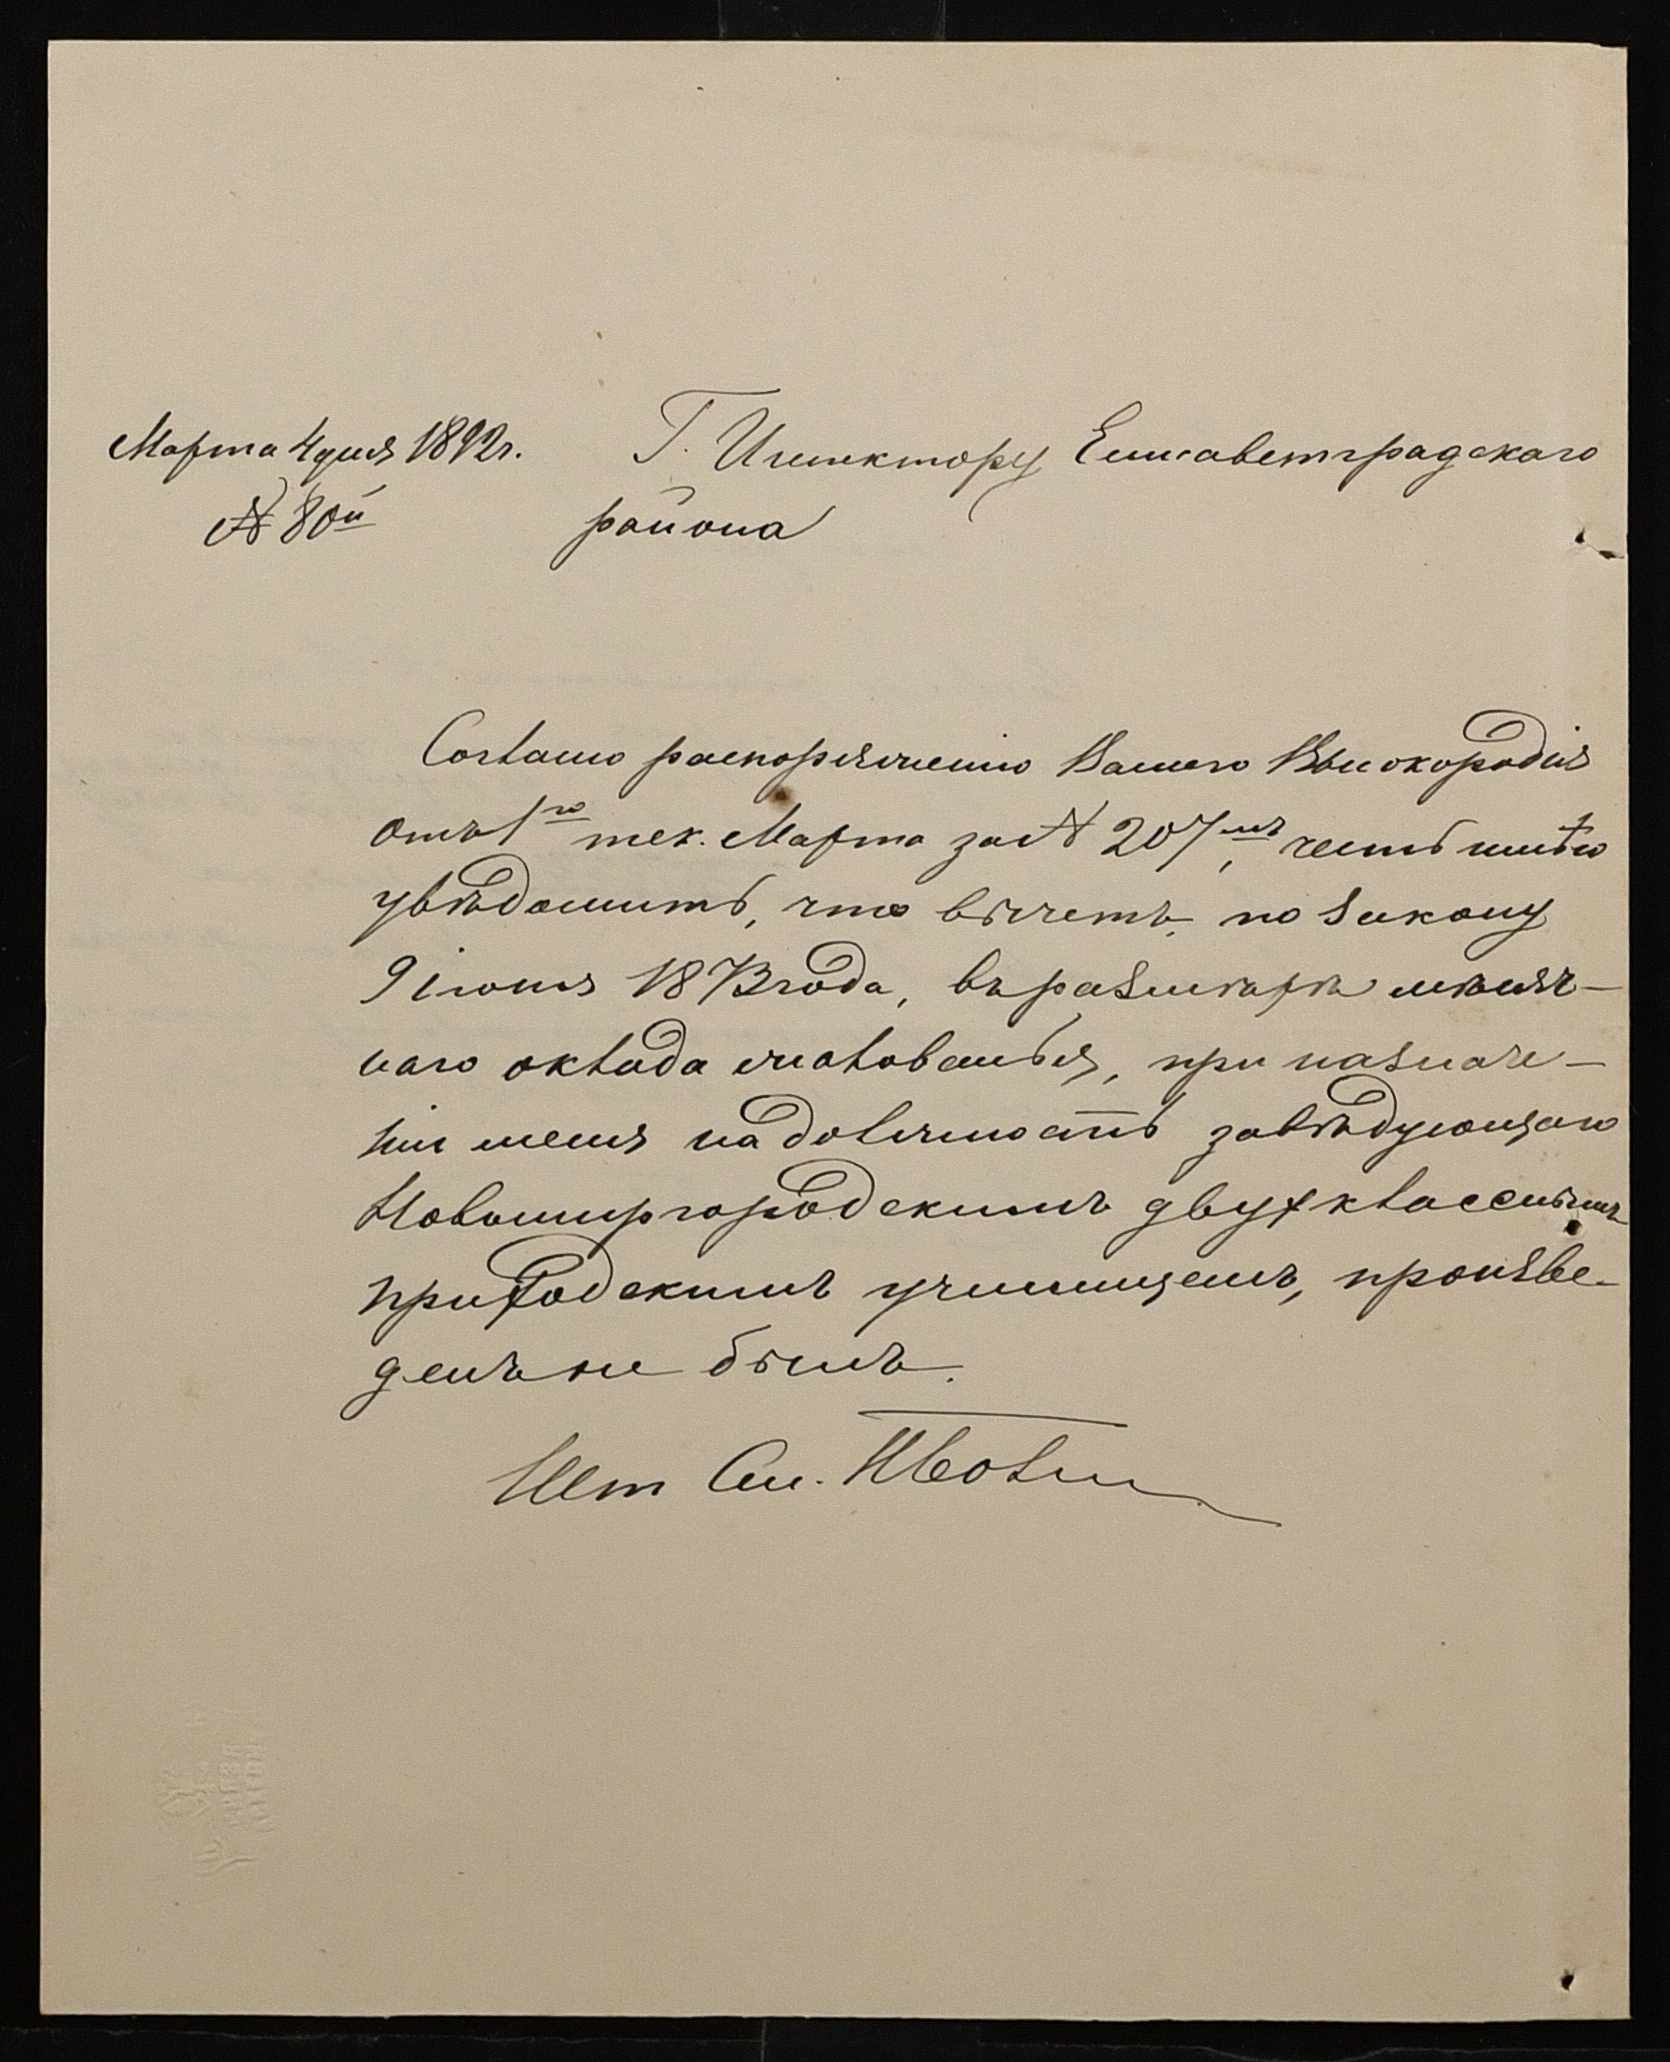 Марта 4 дня 1892 г.
№ 80й
Г. Инспектору Елисаветградскаго
района
Согласно распоряженію Вашего Высокородія
отъ 1го тек. Марта за № 207мъ, честь имѣю
увѣдомить, что вычетъ, по закону
9 іюня 1873 года, въ размѣрѣ мѣсяч-
наго оклада жалованья, при назначе-
ніи меня на должность завѣдующаго
Новомиргородскимъ двухкласснымъ
приходскимъ училищемъ, произве-
денъ не былъ.
Шт См.